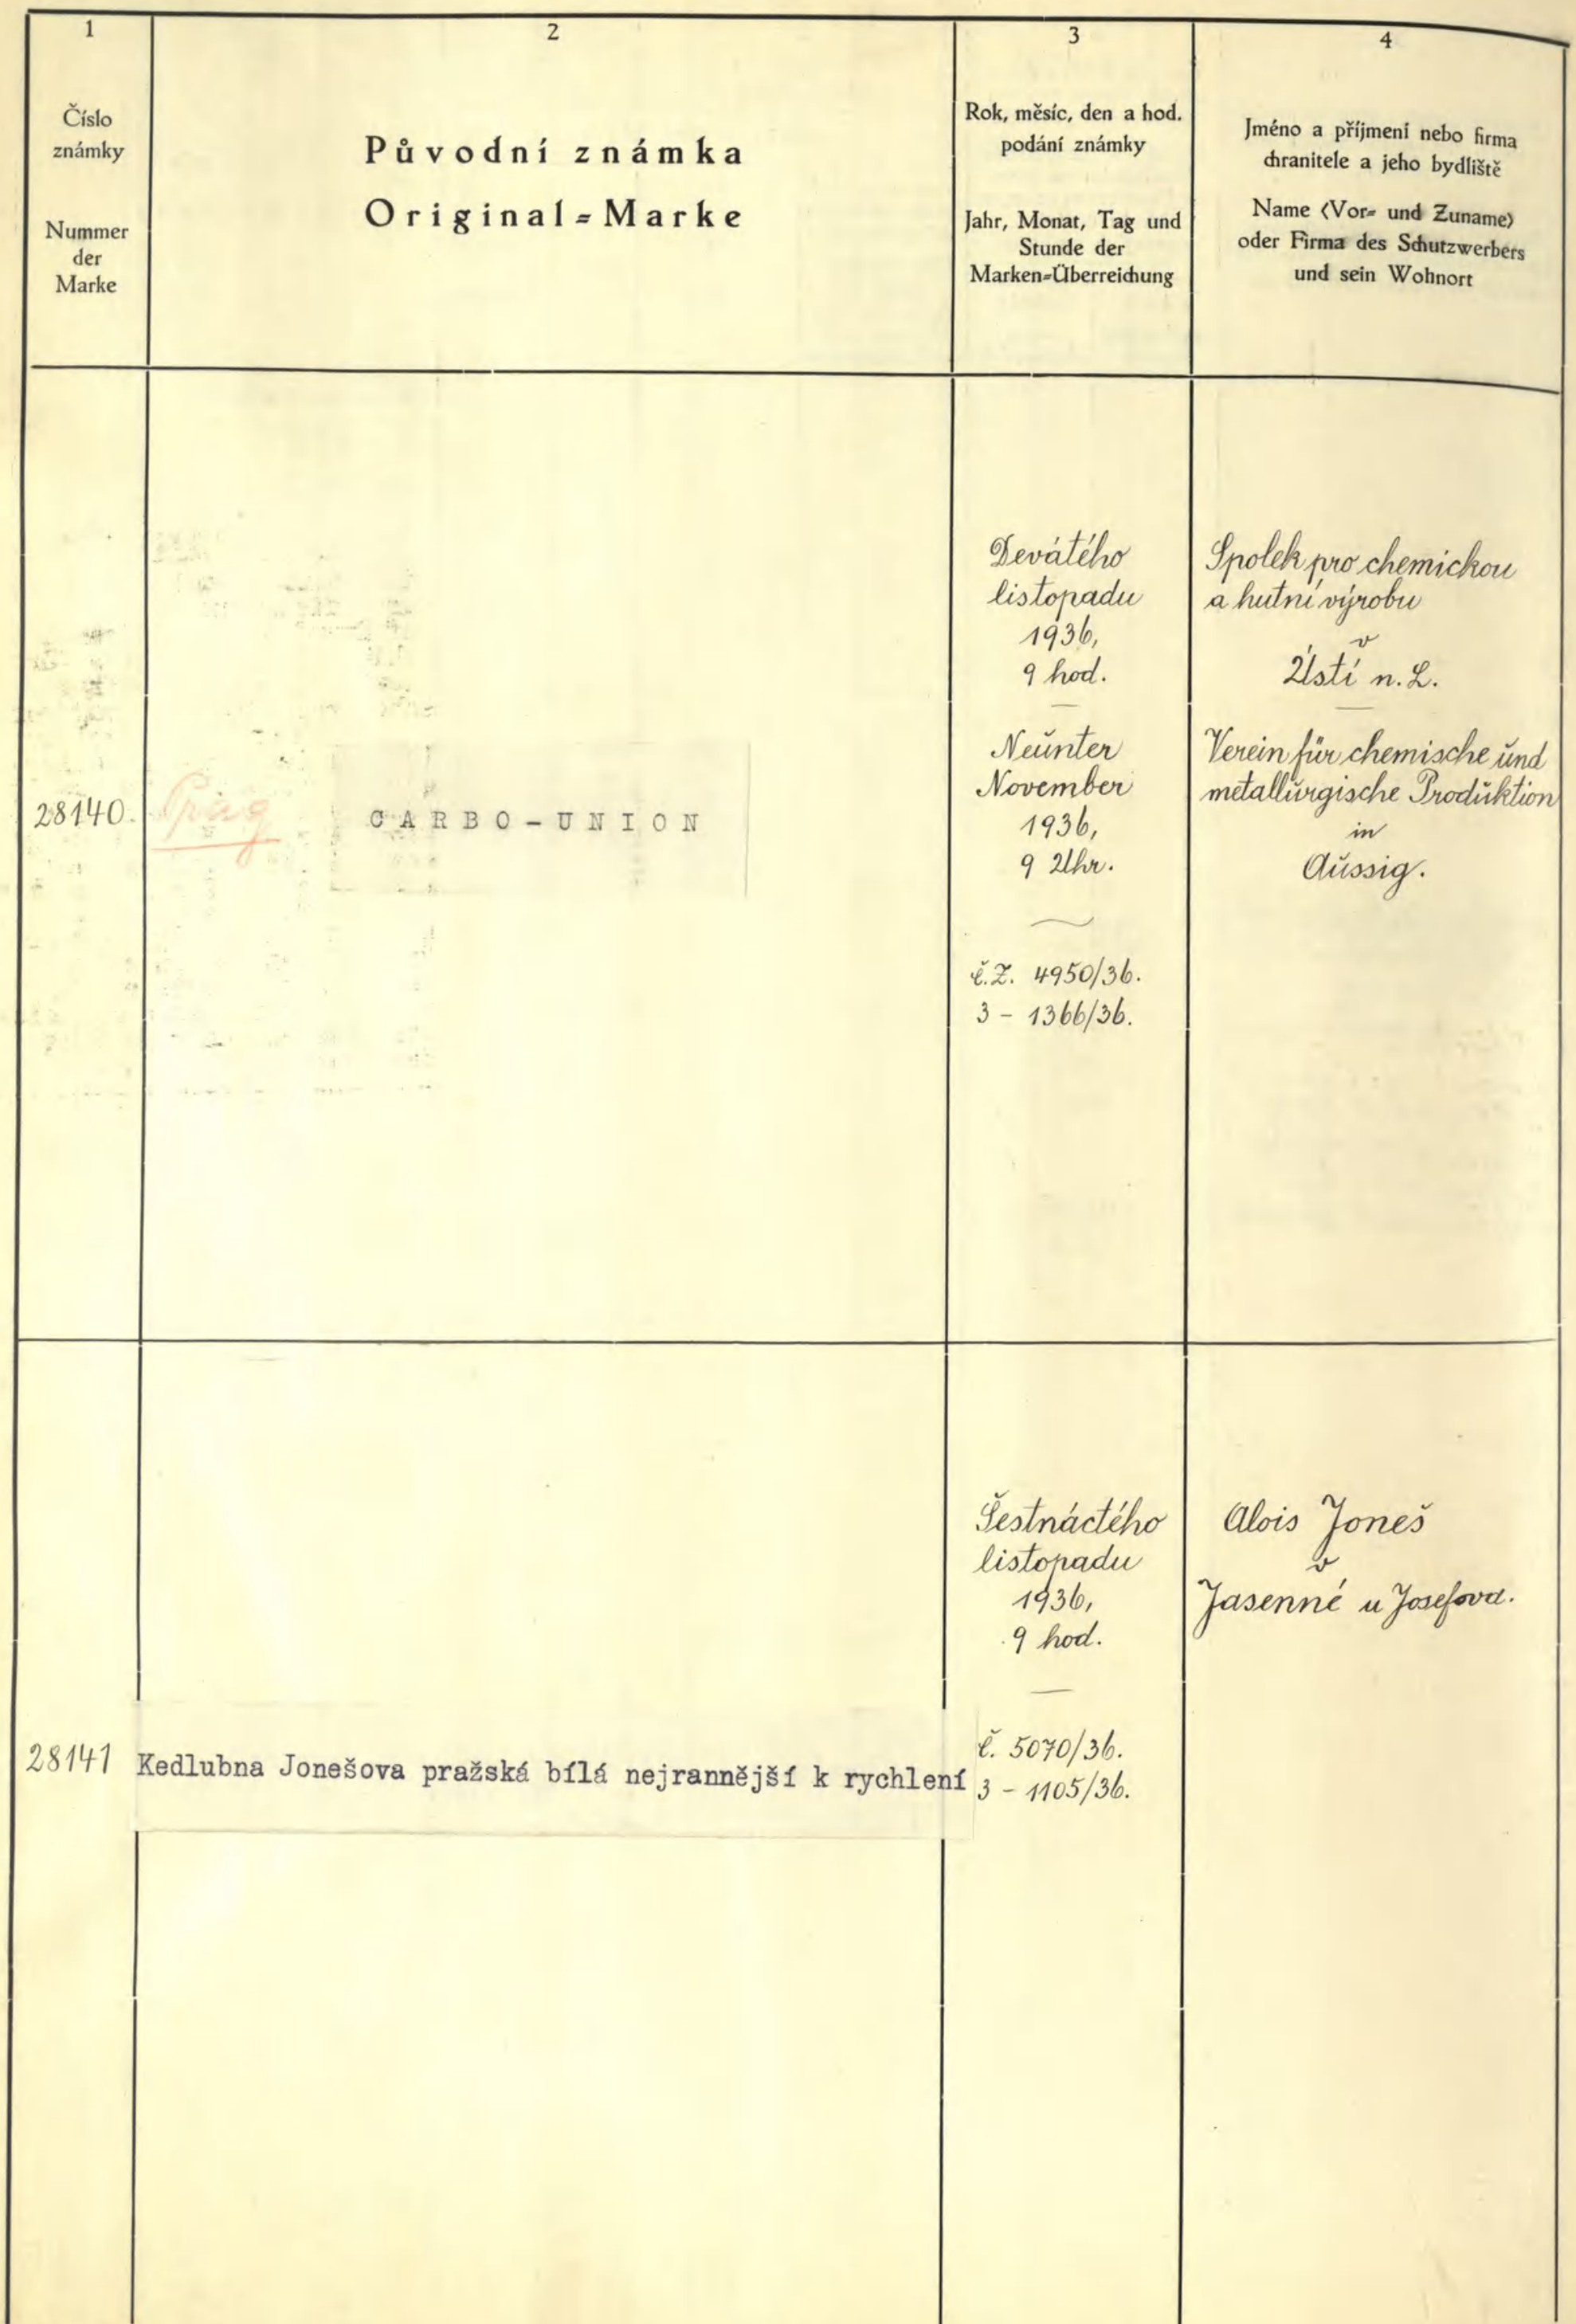 1
Číslo
známky
Nummer
der
Marke
2
Původní známka
Original=Marke
3
Rok, měsíc, den a hod.
podání známky
Jahr, Monat, Tag und
Stunde der
Marken=Überreichung
4
Jméno a příjmení nebo firma
chranitele a jeho bydliště
Name (Vor= und Zuname)
oder Firma des Schutzwerbers
und sein Wohnort
28140.
Prag
CARBO-UNION
Devátého
listopadu
1936,
9 hod.
Neunter
November
1936,
9 Uhr.
č.Z. 4950/36.
3 - 1366/36.
Spolek pro chemickou
a hutní výrobu
v
Ústí n. L.
Verein für chemische und
metallurgische Produktion
in
Aussig.
28141
Kedlubna Jonešova pražská bílá nejrannější k rychlení
Šestnáctého
listopadu
1936,
9 hod.
č. 5070/36.
3 - 1105/36.
Alois Joneš
v
Jasenné u Josefova.